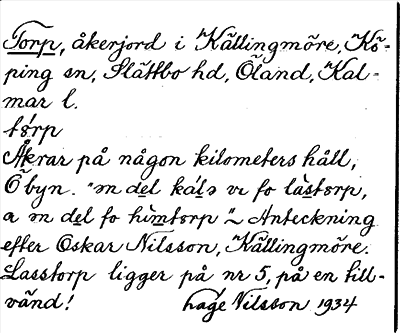 Torp, åkerjord i Källingmöre, Kö-
ping sn, Slättbo hd, Öland, Kal-
mar l.
tórp
Åkrar på någon kilometers håll,
Ö byn. "ɯ del kálə vɩ fo làstorp,
a ɯ del fo hìmtorp" ~ Anteckning
efter Oskar Nilsson, Källingmöre.
Lasstorp ligger på nr 5, på en till-
vänd! Lage Nilsson 1934